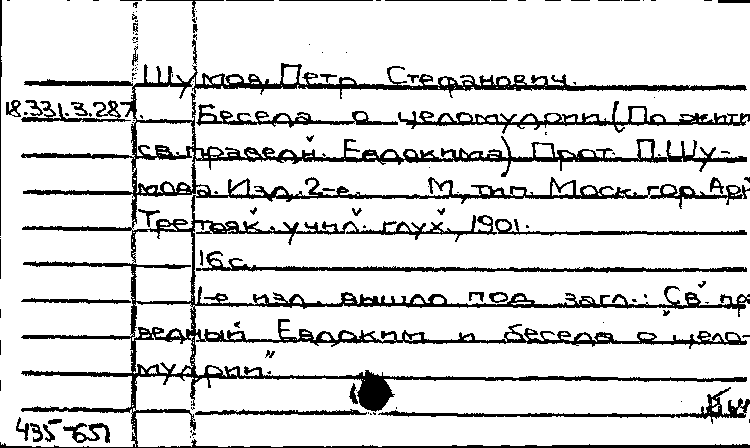 Шумов, Петр Стефанович.
18.331.3.287. Беседа о целомудрии. (По жити
св. праведн. Евдокима) Прот. П. Шу-
мова. Изд. 2-е. М, тип. Моск. гор. Арн
Третьяк. учил. глух., 1901.
16 с.
1-е изд. вышло под загл.: "Св. пра
ведный Евдоким и беседа о цело-
мудрии."
435-651